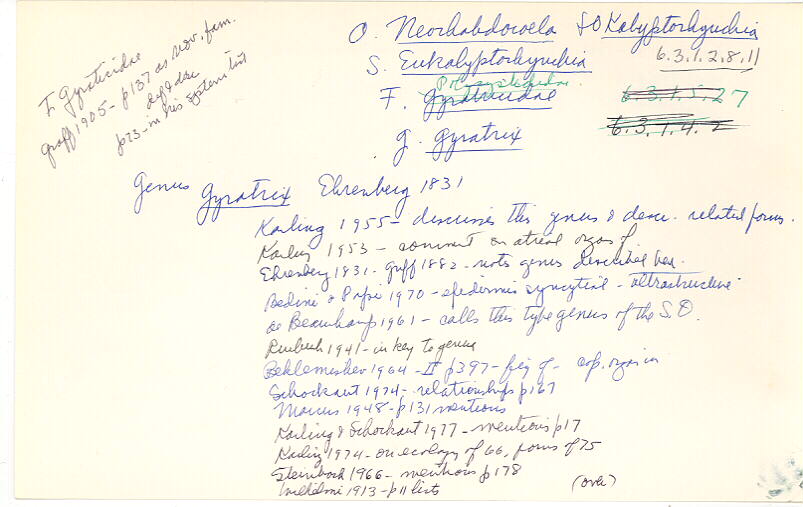 F Gyratricidae
Graff 1905- p137 as nov. fam.
defn & disc
p23- in his system list
O. Neorhabdocoela SO Kalyptorhynchia
S. Eukalyptorhynchia 6.3.1.2.8.11
Polycystididae
F. Gyratricidae 6.3.1.5.27
G. Gyratrix 6.3.1.4.2
Genus Gyratrix Ehrenberg 1831
Karling 1955- discusses this genus & descr. related forms.
Karling 1953- comment on atrial organ of
Ehrenberg 1831. Graff 1882- notes genus described here.
Bedini & Papi 1970- epidermis syncytial- ultrastructure
de Beauchamp 1961- calls this type genus of the S.O.
1941- in key to genera
Beklemishev 1964- II p397- fig of- cop. organ in
Schockaert 1974- relationships p167
Marcus 1948- p131 mentions
Karling & Schockaert 1977- mentions p17
Karling 1974- on ecology of 66, forms of 75
Steinböck 1966- mentions p178
Wilhelmi 1913- p11 lists (over)